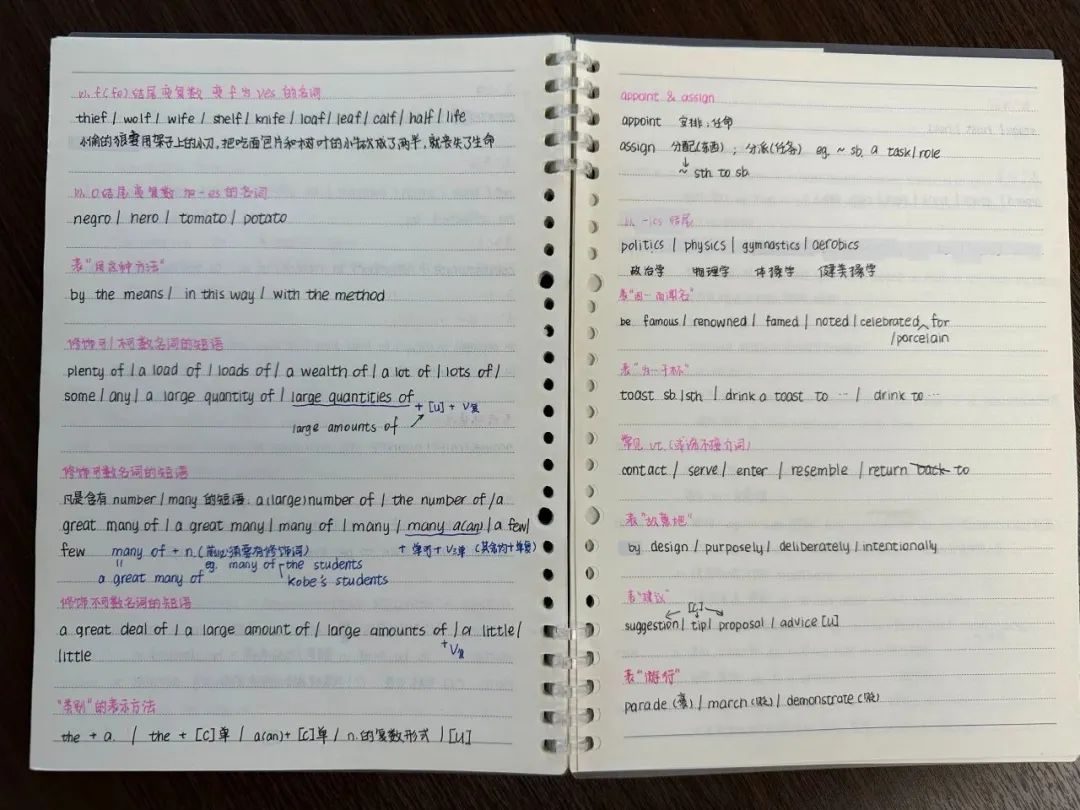 以 f(fe)结尾变复数 变f为ves的名词
thief / wolf / wife / shelf / knife / loaf / leaf / calf / half / life
小偷的狼妻用架子上的小刀，把吃面包片和树叶的小牛砍成了两半，就丧失了生命
以 o结尾变复数 加-es的名词
negro / hero / tomato / potato
表"用这种方法"
by the means / in this way / with the method
修饰可/不可数名词的短语
plenty of / a load of / loads of / a wealth of / a lot of / lots of /
some / any / a large quantity of / large quantities of
+ [U] + V复
large amounts of
修饰可数名词的短语
凡是含有 number / many 的短语: a (large) number of / the number of / a
great many of / a great many / many of / many / many a(an) / a few /
few many of + n. (前必须要有修饰词) + 单可 + V单 (其余均+单复)
eg. many of the students
a great many of kobe's students
修饰不可数名词的短语
a great deal of / a large amount of / large amounts of / a little /
+ V复
little
"类别"的表示方法
the + a. / the + [C]单 / a(an)+ [C]单 / n.的复数形式 / [U]
appoint & assign
appoint 安排；任命
assign 分配(东西)；分派(任务) eg. ~ sb. a task / role
~ sth. to sb.
以 -ics 结尾
politics / physics / gymnastics / aerobics
政治学 物理学 体操学 健美操学
表"因…而闻名"
be famous / renowned / famed / noted / celebrated for
/porcelain
表"为…干杯"
toast sb./sth / drink a toast to … / drink to …
常见 vt. (或许不接介词)
contact / serve / enter / resemble / return back to
表"故意地"
by design / purposely / deliberately / intentionally
表"建议"
[C]
suggestion / tip / proposal / advice [U]
表"游行"
parade (褒) / march (贬) / demonstrate (贬)